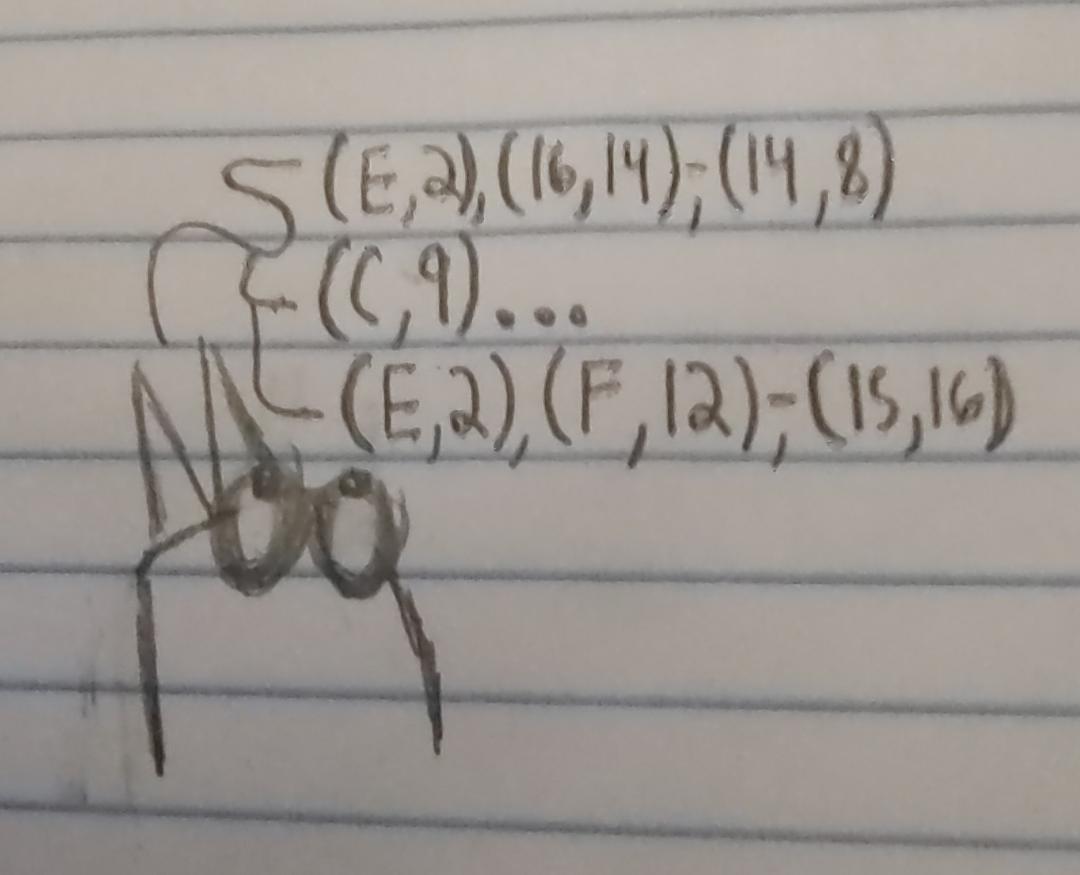 (E,2),(16,14);-(14,8)
(C,9)...
(E,2),(F,12);-(15,16)